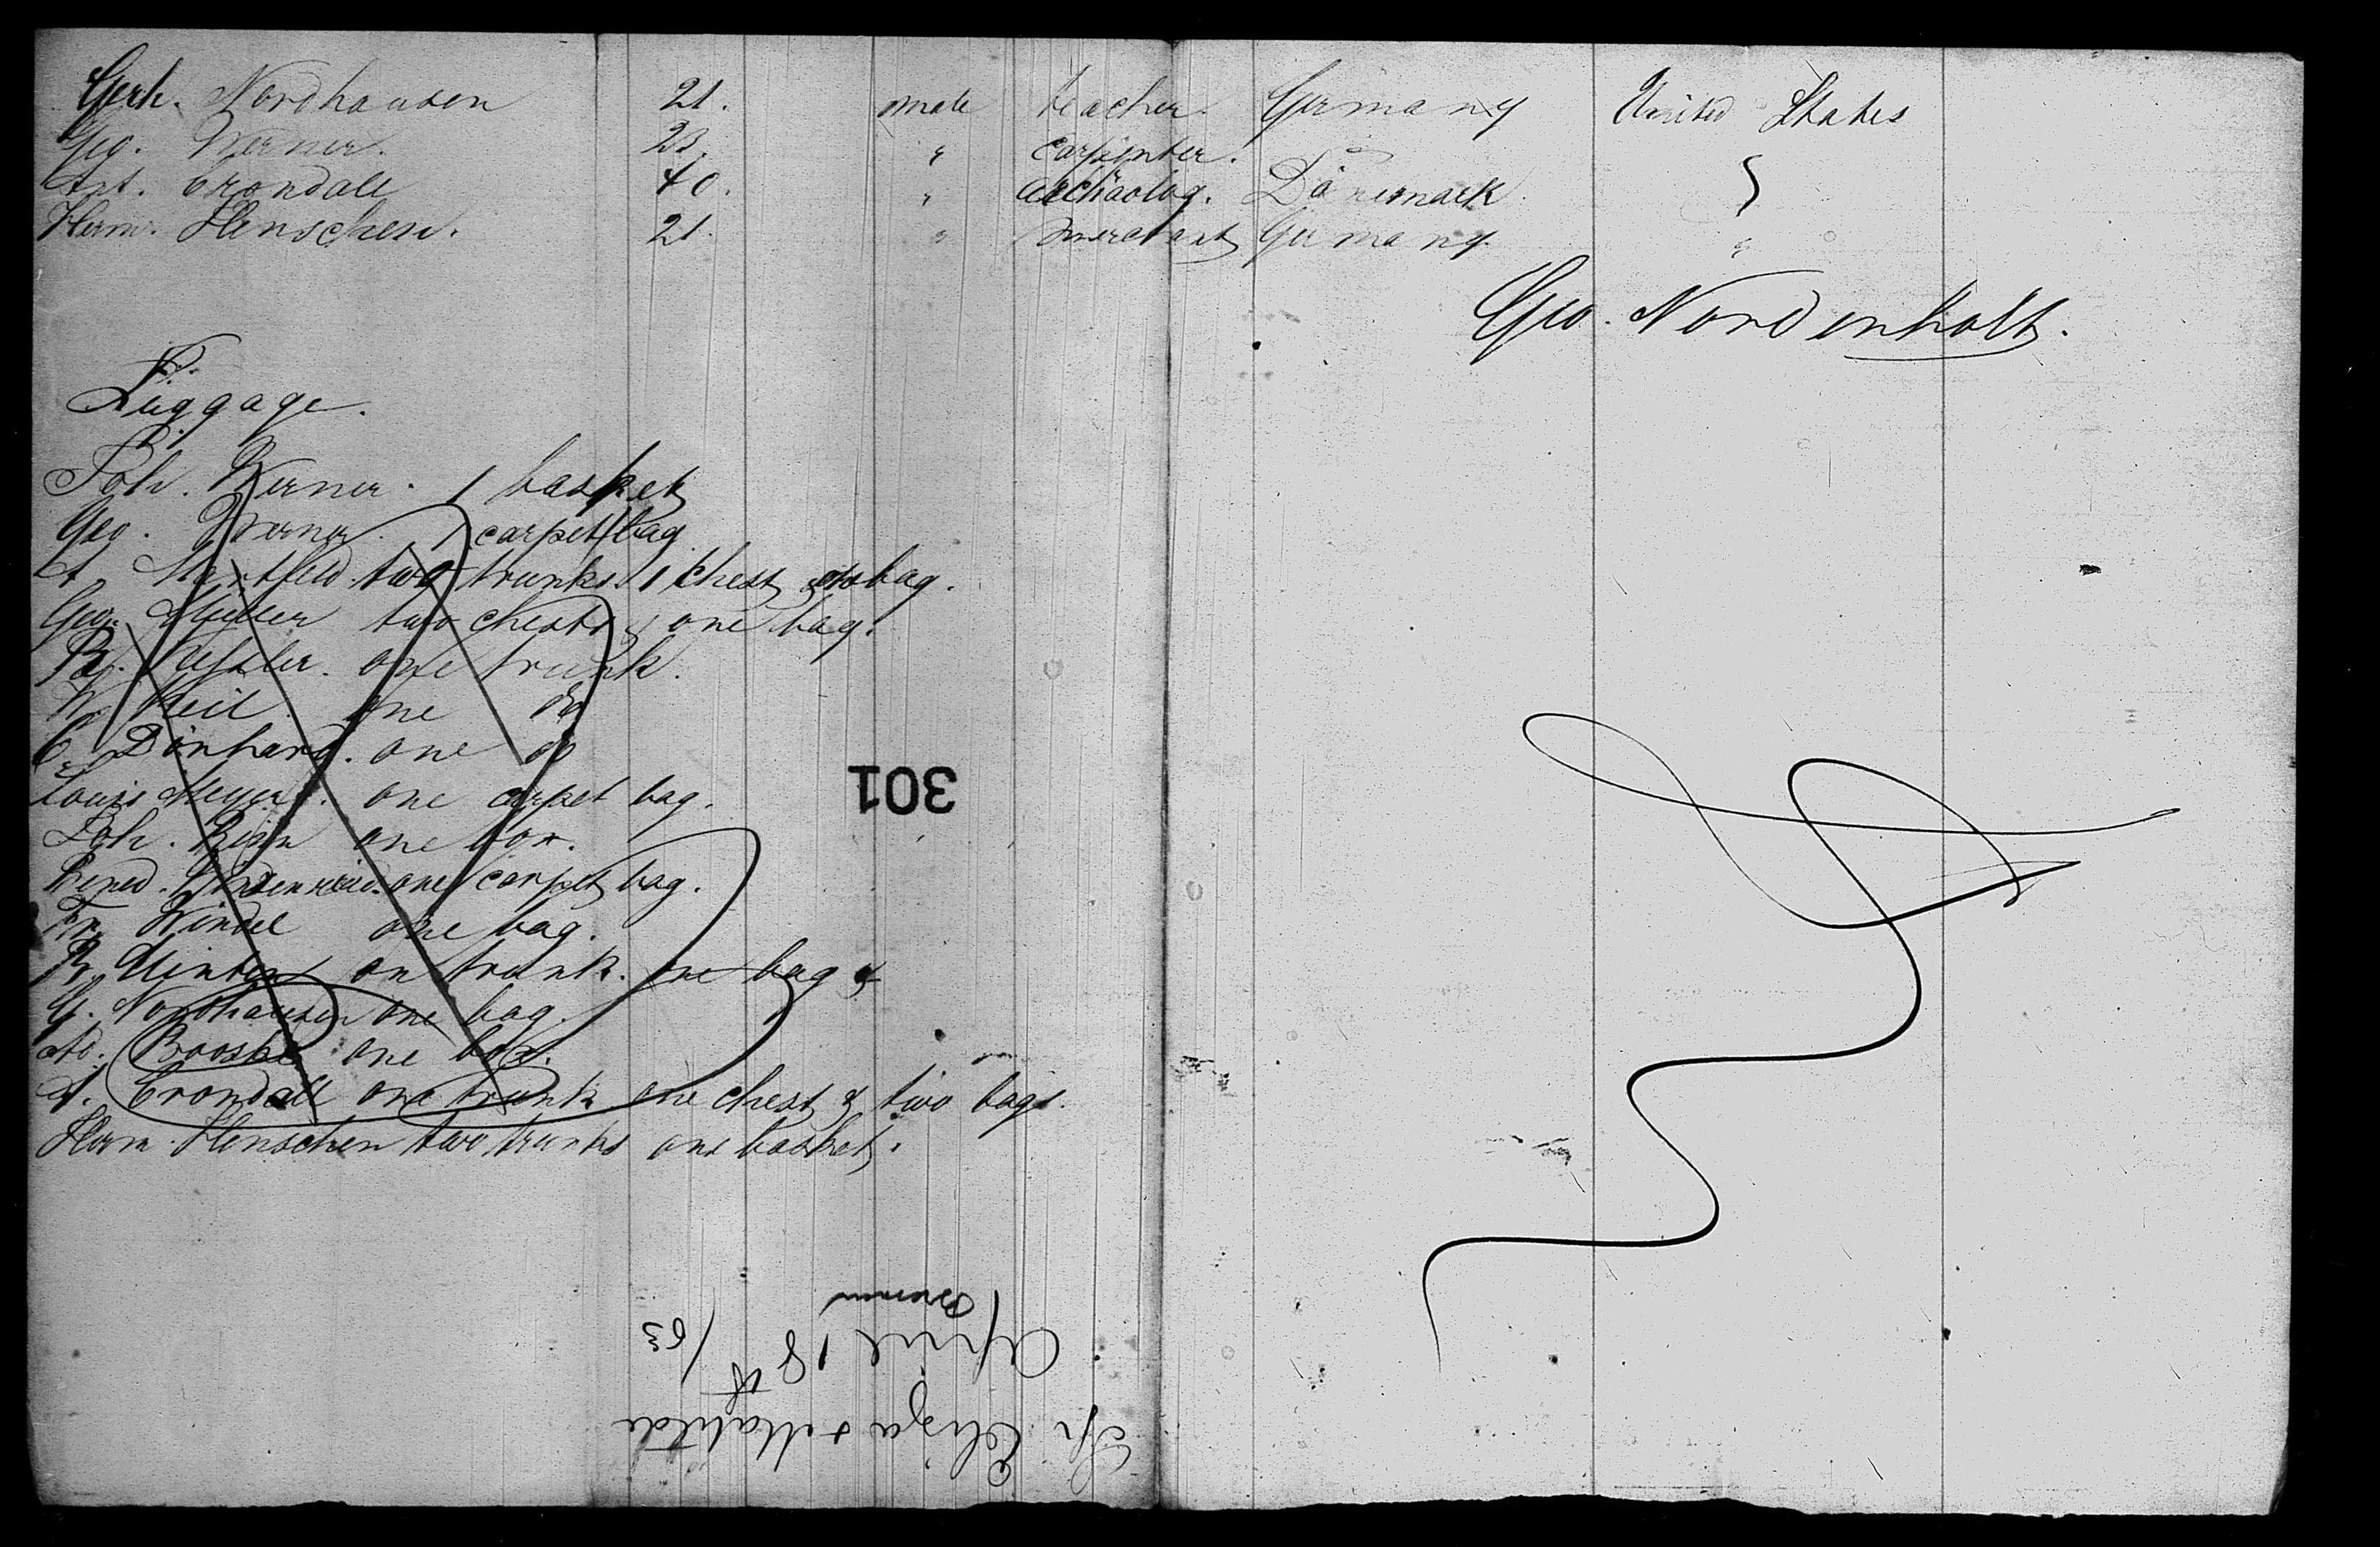 Gerh. Nordhausen 21. male teacher. Germany United States
Geo. Werner. 23. " carpenter.
Ant. Crondall 40. " archäolog. Dänemark
Herm. Henschen. 21. " merchant Germany. "
Geo. Nordenholt.
Luggage.
Joh. Werner. 1 basket
Geo. Werner. 1 carpet bag
A. two trunks. 1 chest bag.
Geo. Müller two chests & one bag.
Kessler. one trunk.
W. Keil. one do
C. Dönhard. one do
Louis Meyer. one carpet bag.
Joh. one box.
Bened. one carpet bag.
Fr. Windel one bag.
Minten on trunk. one bag &
G. Nordhausen one bag.
Ad. one box.
A. Crondall one trunk one chest & two bags.
Herm. Henschen two trunks one basket.
301
Sp. Elisa & Matilde
April 18th /63
Bremen